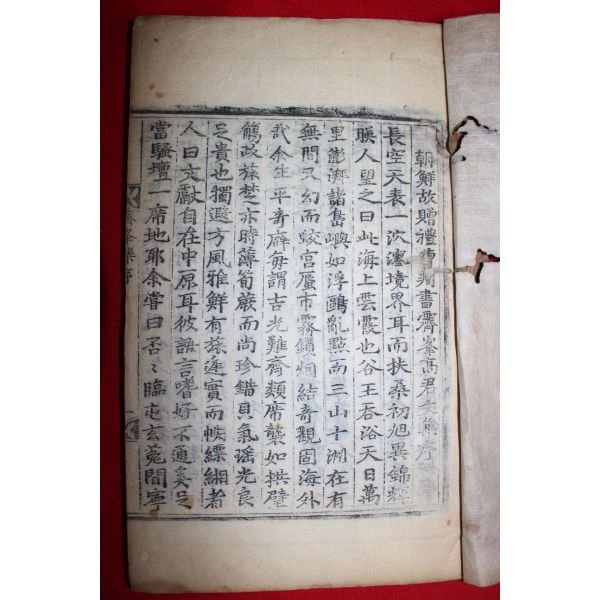 朝鮮故贈禮曹判書霽峯高君文集序
長空天表一泬㵳境界耳而扶桑初旭異錦輝
暎人望之曰此海上雲霞也谷王吞浴天日萬
里澎濞諸島嶼如浮鷗亂點而三山十洲在有
無間又幻而蛟宮蜃市霧鎖烟結奇觀固海外
哉余生平奇癖每謂吉光難齊類席襲如拱璧
觴政旅楚亦時薄筍蕨而尚珍錯貝氣瑶光良
足貴也獨遐方風雅鮮有旅筵實而帙縹緗者
人曰文獻自在中原耳彼語言嗜好不通奚足
當騷壇一席地耶余嘗曰否〻臨屯玄菟間寧
霽峯集序